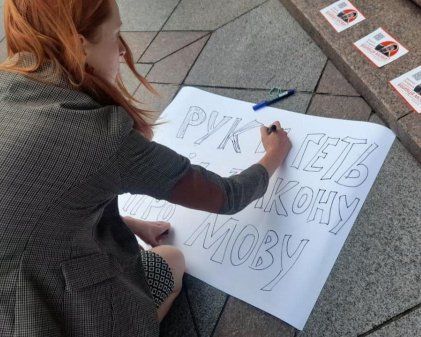 РУКИ ГЕТЬ
ВІД ЗАКОНУ
ПРО МОВУ